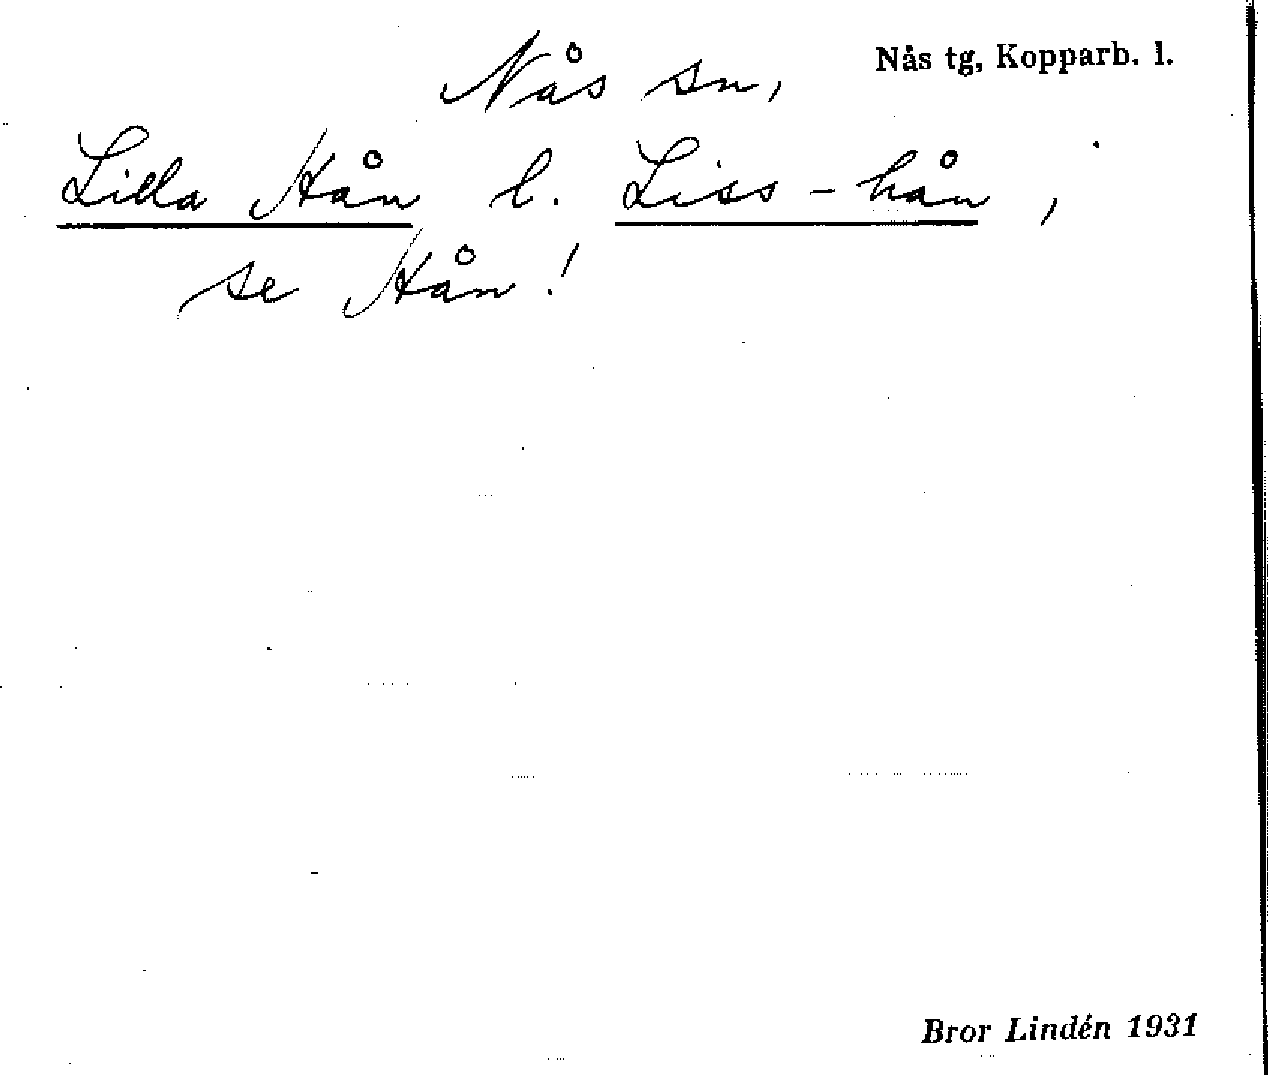 Nås sn, Nås tg, Kopparb. l.
Lilla Hån l. Liss-hån,
se Hån!
Bror Lindén 1931